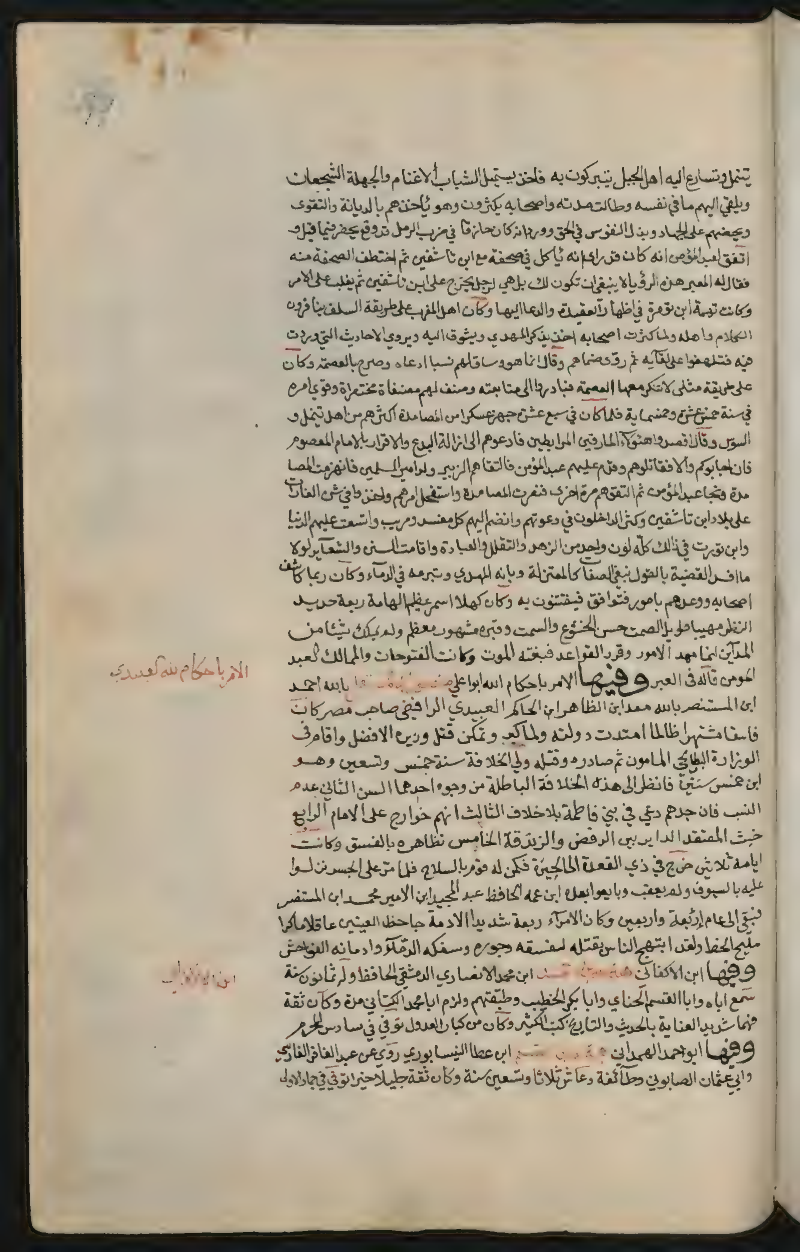 بتينمل وتسارع اليه اهل الجبل يتبركون به فاخذ يستميل الشباب الاغتام والجهلة الشجعان
ويلقي اليهم ما في نفسه وطالت مدته واصحابه يكثرون وهو ياخذهم بالديانة والتقوى
ويحضهم على الجهاد وبذل النفوس في الحق وورد انه كان حاذقا في ضرب الرمل قد وقع بجفر فيما قيل و
اتفق لعبد المؤمن انه كان قد راى انه ياكل في صحفة مع ابن تاشفين ثم اختطف الصحفة منه
فقال له المعبر هذه الرؤيا لا ينبغي ان تكون لك بل هي لرجل يخرج على ابن تاشفين ثم يغلب على الامر
وكانت تهمة ابن تومرت في اظهار العقيدة والدعا اليها وكان اهل المغرب على طريقة السلف ينافرون
الكلام واهله ولما كثرت اصحابه اخذ يذكر المهدي ويشوق اليه ويروي الاحاديث التي وردت
فيه فتلهفوا على لقايه ثم روى ظماهم وقال انا هو وساق لهم نسبا ادعاه وصرح بالعصمة وكان
على طريقة مثلى لا تنكر معها العصمة فبادروا الى متابعته وصنف لهم مصنفاة مختصراة وقوي امره
في سنة خمس عشرة وخمسماية فلما كان في سبع عشرة جهز عسكرا من المصامدة اكثرهم من اهل تينمل و
السوس وقال اقصدوا هؤلاء المارقين المرابطين فادعوهم الى ازالة البدع والاقرار بالامام المعصوم
فان اجابوكم والا فقاتلوهم وقدم عليهم عبد المؤمن فالتقاهم الزبير ولد امير المسلمين فانهزمت المصا
مدة ونجا عبد المؤمن ثم التقوهم مرة اخرى فنصرت المصامدة واستفحل امرهم واخذوا في شن الغارات
على بلاد ابن تاشفين وكثر الداخلون في دعوتهم وانضم اليهم كل مفسد ومريب واتسعت عليهم الدنيا
وابن تومرت في ذلك كله لون واحد من الزهد والتقلل والعبادة واقامة السنن والشعاير لولا
ما افسد القضية بالقول بنفي الصفات كالمعتزلة وبانه المهدي وبتسرعه في الدماء وكان ربما كاشف
اصحابه ووعدهم بامور فتوافق فيفتتنون به وكان كهلا اسمر عظيم الهامة ربعة حديد
النظر مهيبا طويل الصمت حسن الخشوع والسمت وقبره مشهور معظم ولم يملك شيئا من
المدآين انما مهد الامور وقرر القواعد فبغته الموت وكانت الفتوحات والممالك لعبد
المومن قاله في العبر وفيها الامر باحكام الله ابو علي بالله احمد
ابن المستنصر بالله معد ابن الظاهر ابن الحاكم العبيدي الرافضي صاحب مصر كان
فاسقا مشتهرا ظالما امتدت دولته ولما كبر وتمكن قتل وزيره الافضل واقام في
الوزارة البطايحي المامون ثم صادره وقتله ولي الخلافة سنة خمس وتسعين وهو
ابن خمس سنين فانظر الى هذه الخلافة الباطلة من وجوه احدها السن الثاني عدم
النسب فان جدهم دعي في بني فاطمة بلا خلاف الثالث انهم خوارج على الامام الرابع
خبث المعتقد الداير بين الرفض والزندقة الخامس تظاهره بالفسق وكانت
ايامه ثلاثين خرج في ذي القعدة الى الجيزة فكمن له قوم بالسلاح فلما مر على الجسر نزلوا
عليه بالسيوف ولم يعقب وبايعوا بعده ابن عمه الحافظ عبد المجيد ابن الامير محمد ابن المستنصر
فبقي الى عام اربعة واربعين وكان الامر ربعة شديد الادمة جاحظ العينين عاقلا ماكرا
مليح الخط ولقد ابتهج الناس بقتله لفسقه وجوره وسفكه الدماء وادمانه الفواحش
وفيها ابن الاكفاني ابن محمد الانصاري الدمشقي الحافظ وله ثمانون سنة
سمع اباه وابا القسم الحناي وابا بكر الخطيب وطبقتهم ولزم ابا محمد الكتاني مدة وكان ثقة
فهما شديد العناية بالحديث والتاريخ كتب الكثير وكان من كبار العدول توفي في سادس المحرم
وفيها ابو احمد ابن عطا النيسابوري روى عن عبد الغافر الفارسي
وابي عثمان الصابوني وطائفة وعاش ثلاثا وتسعين سنة وكان ثقة جليلا خيرا توفي في جماد الاولى
الامر باحكام الله العبيدي
ابن الاكفاني